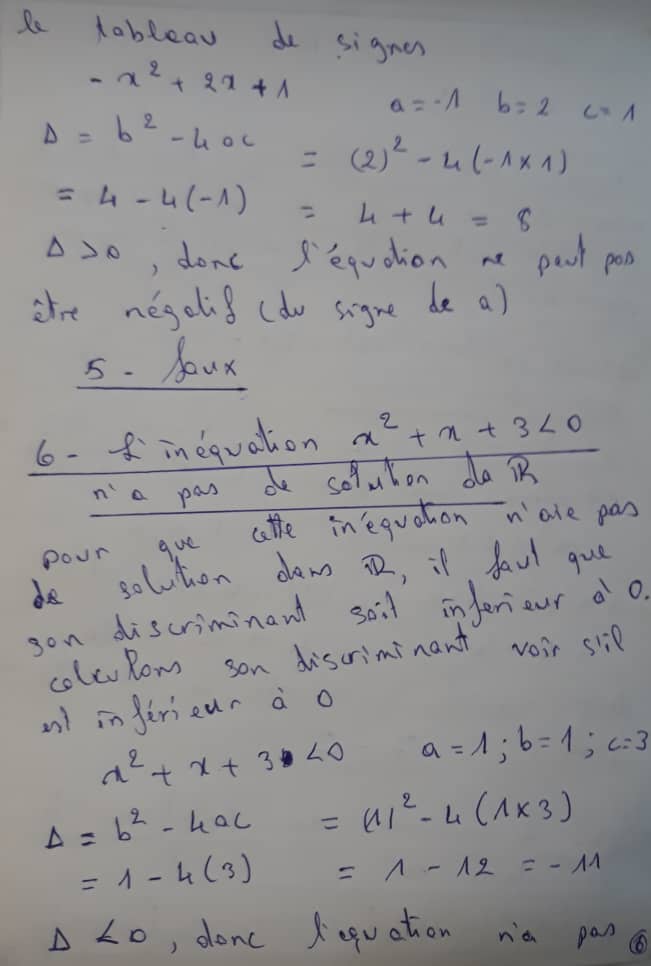 le tableau de signes
- x² + 2x + 1
a = -1 b = 2 c = 1
Δ = b² - 4ac = (2)² - 4(-1×1)
= 4 - 4(-1) = 4 + 4 = 8
Δ > 0, donc l'équation ne peut pas
être négatif (du signe de a)
5 - faux
6 - L'inéquation x² + x + 3 < 0
n'a pas de solution da ℝ
pour que cette inéquation n'aie pas
de solution dans ℝ, il faut que
son discriminant soit inferieur à 0.
calculons son discriminant voir s'il
est inférieur à 0
x² + x + 3 < 0 a = 1 ; b = 1 ; c = 3
Δ = b² - 4ac = (1)² - 4(1×3)
= 1 - 4(3) = 1 - 12 = -11
Δ < 0, donc l'equation n'a pas ⑥